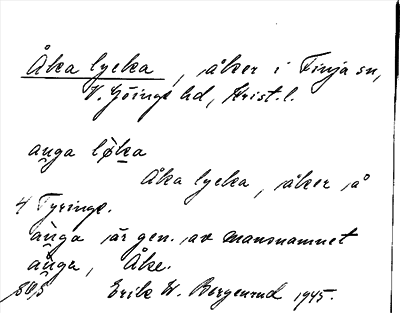 Åka lycka, åker i Finja sn,
V. Göinge hd, Krist. l.
au̯ga lø̜ka
Åka lycka, åker å
4 Tyringe.
au̯ga är gen. av mansnamnet
au̯ge, Åke.
Erik W. Bergenrud 1945.